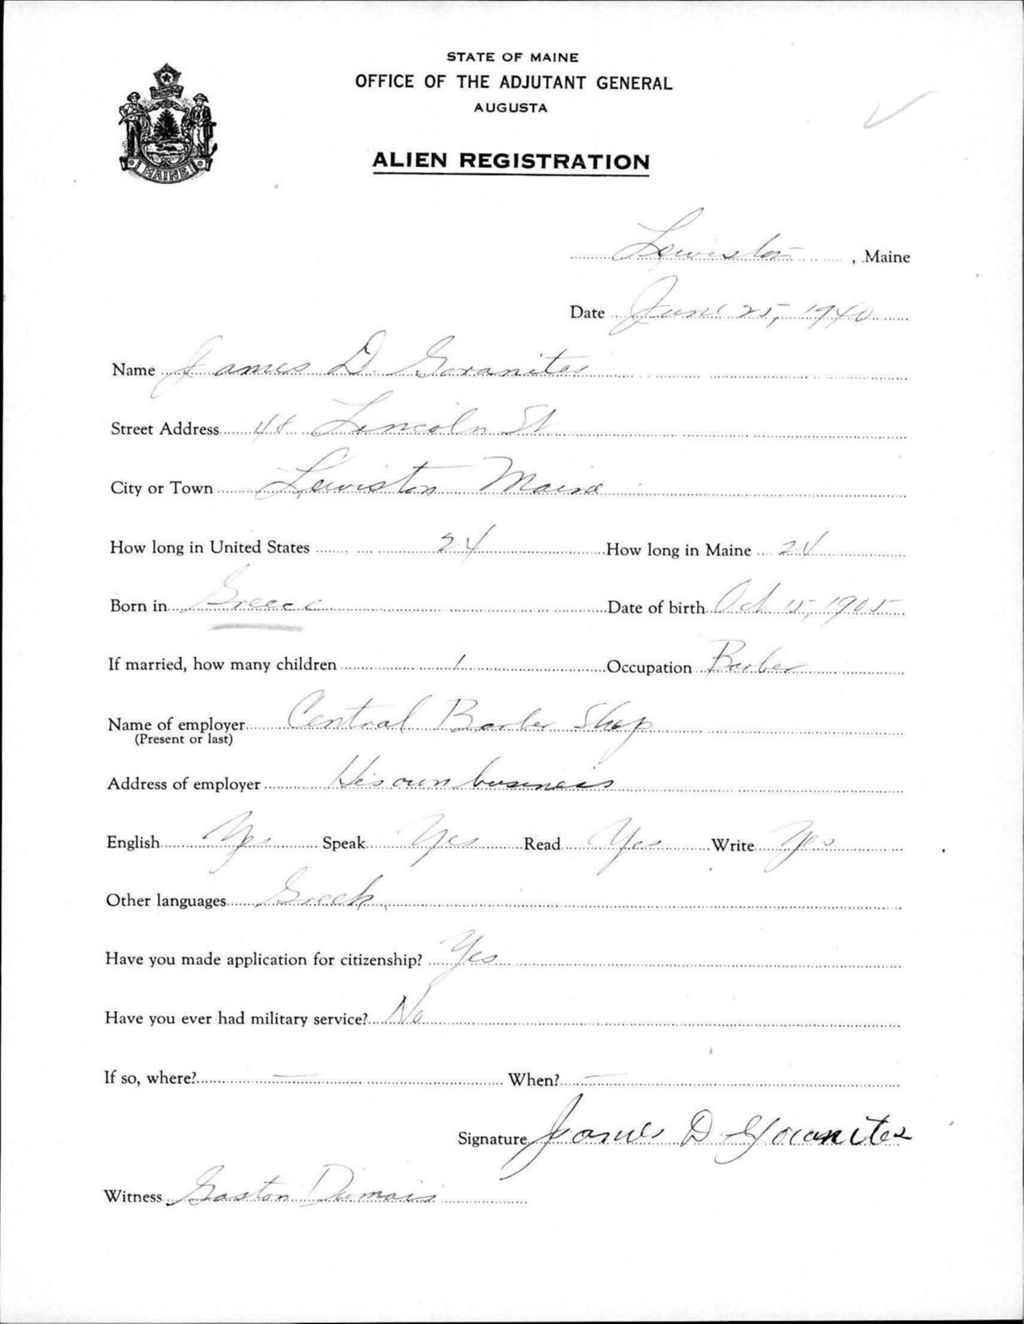 STATE OF MAINE
OFFICE OF THE ADJUTANT GENERAL
AUGUSTA
ALIEN REGISTRATION
MAINE
Lewiston, Maine
Date June 25, 1940
Name James D. Goranites
Street Address Lincoln St
City or Town Lewiston Maine
How long in United States 24 How long in Maine 24
Born in Greece Date of birth Oct 15, 1905
If married, how many children 1 Occupation Barber
Name of employer Central Barber Shop
(Present or last)
Address of employer His own business
English Yes Speak Yes Read Yes Write Yes
Other languages Greek
Have you made application for citizenship? Yes
Have you ever had military service? No
If so, where? — When? —
Signature James D Goranites
Witness Gaston Dumais